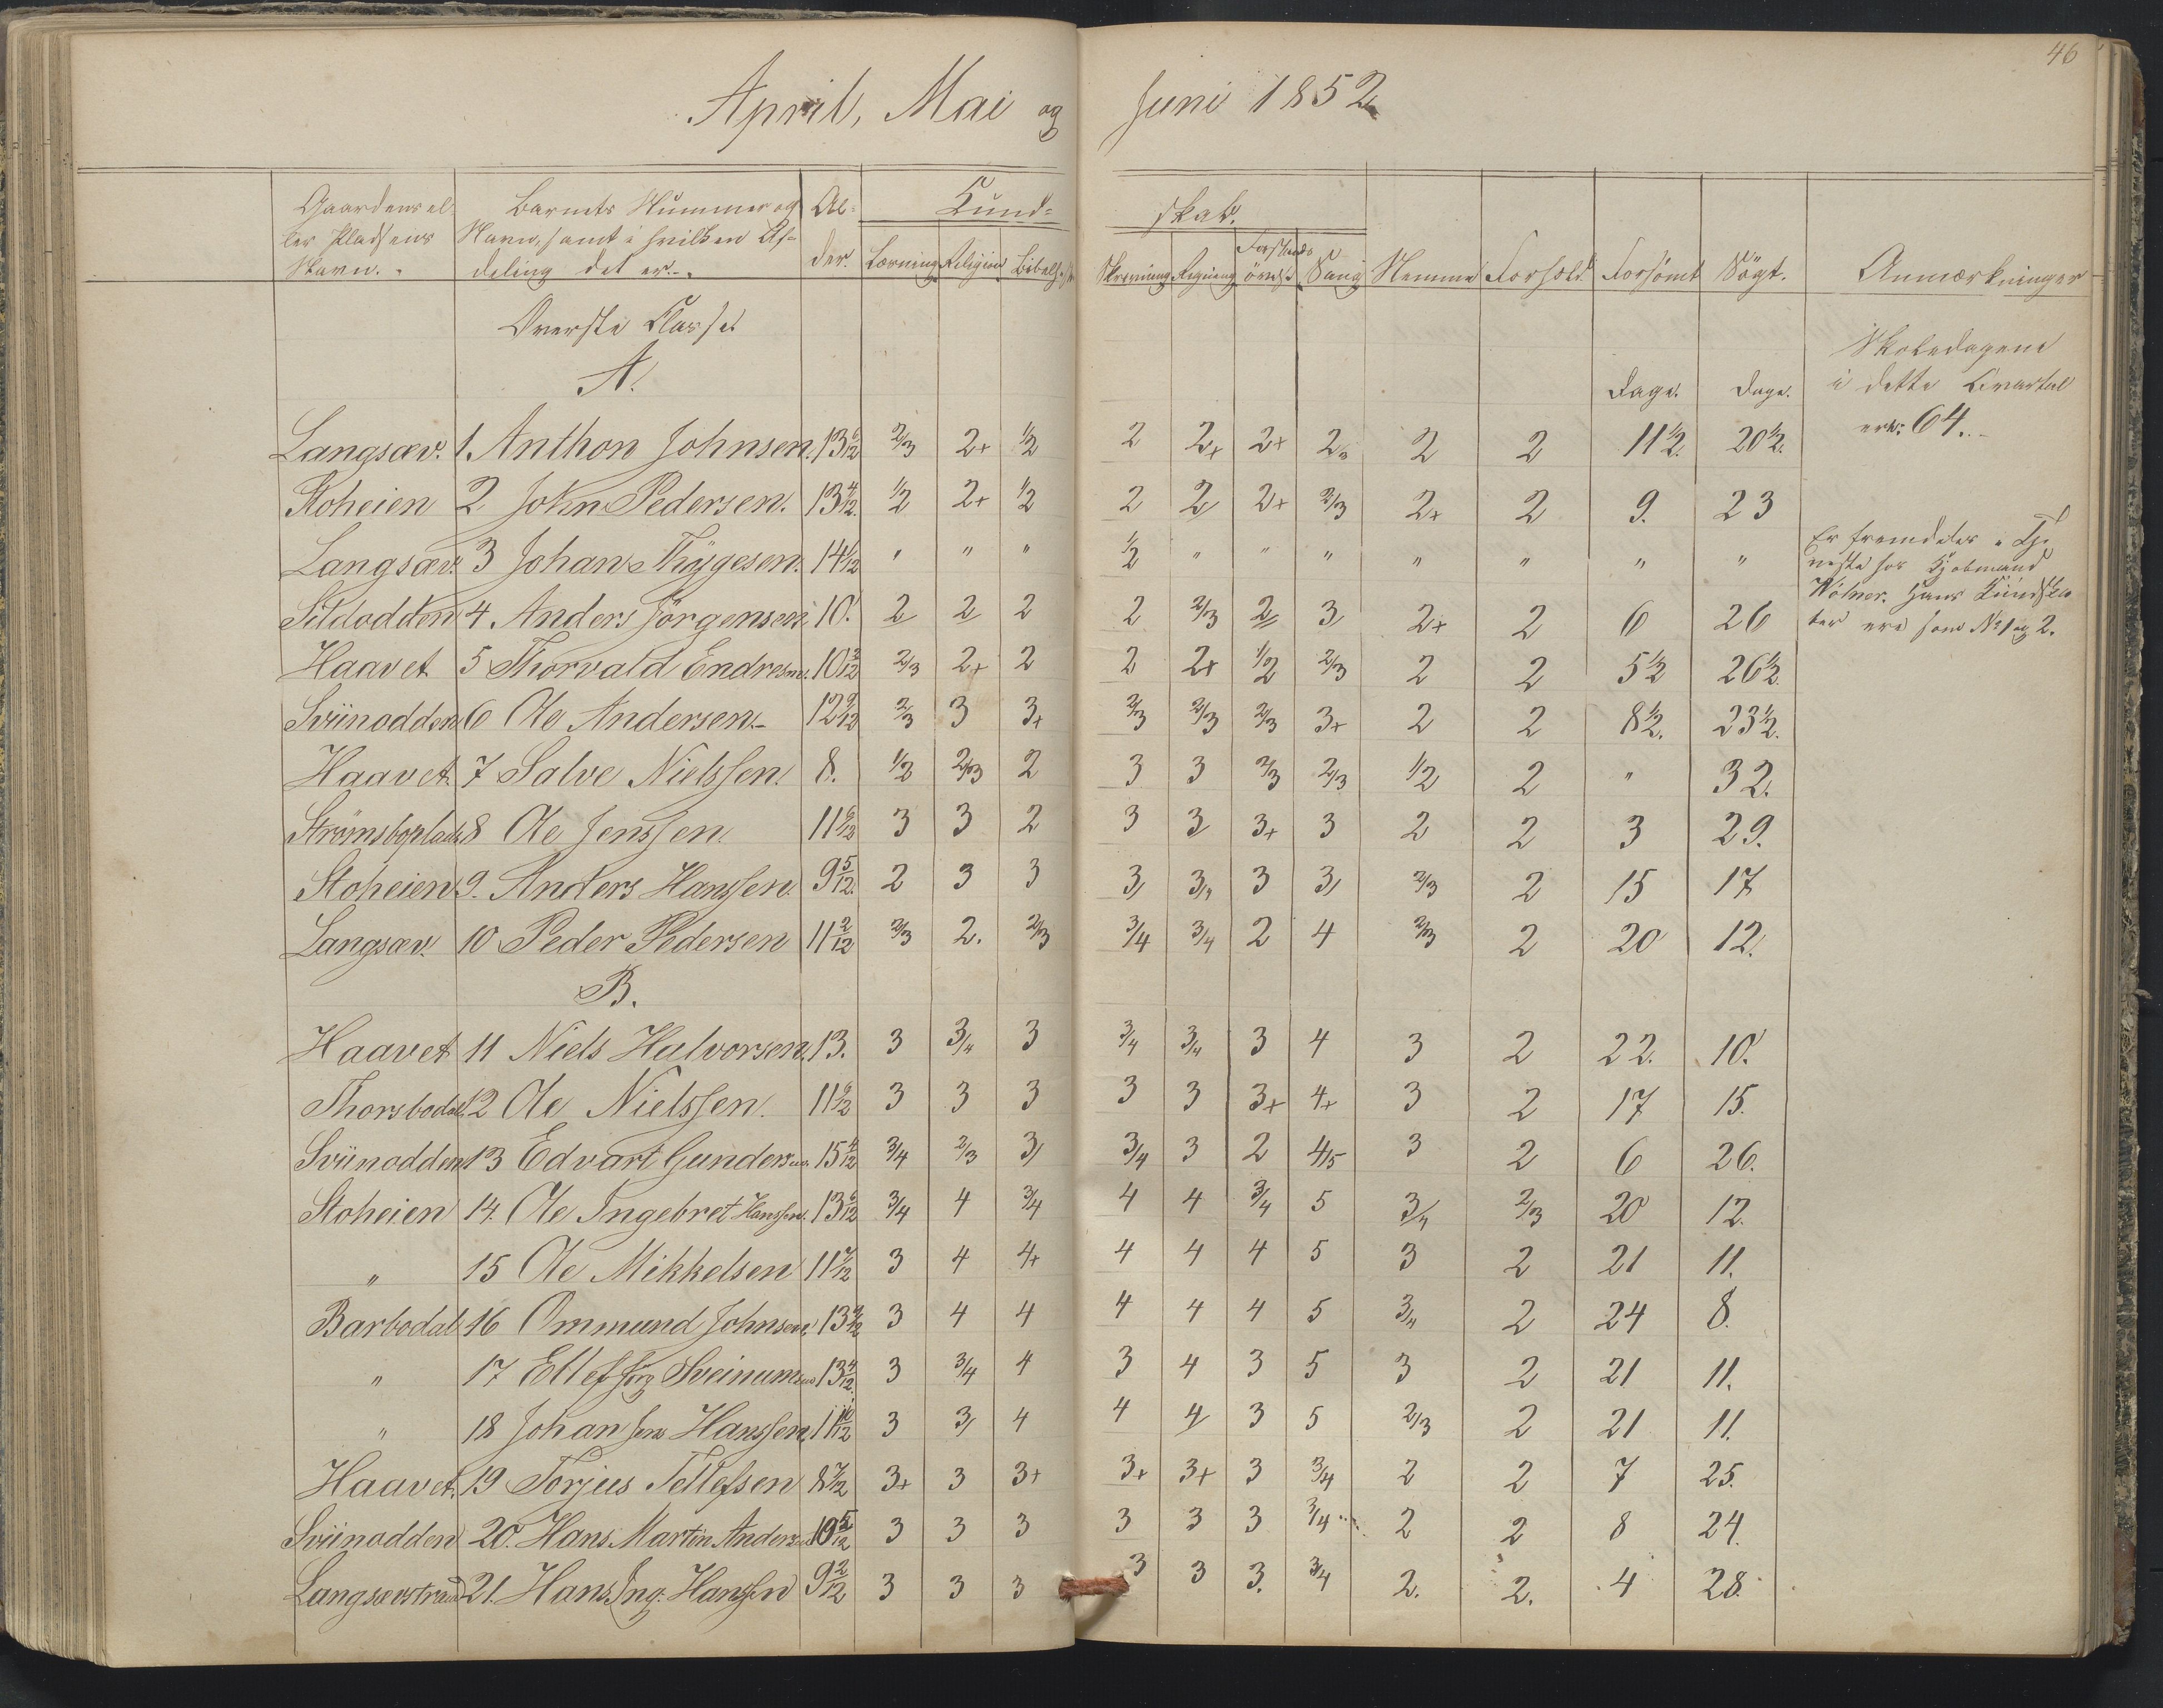 46
April, Mai og Juni 1852
Gaardens el- Barnets Nummer og Al- Kund- skab.
ler Pladsens Navn, samt i hvilken Af- der. Læsning Religion Bibelh. Skrivning Regning Forstands- øvelse Sang Nemme Forhold Forsömt Sögt. Anmærkninger
Navn. deling det er.
Overste Classe
A. Dage. Dage.
Skoledagene
i dette Qvartal
ere: 64.
Langsæv. 1. Anthon Johnsen. 13 6/12 2/3 2+ 1/2 2 2+ 2+ 2 2 2 11 1/2. 20 1/2.
Stoheien 2 John Pedersen. 13 4/12. 1/2 2+ 1/2 2 2 2+ 2/3 2+ 2 9. 23
Langsæv. 3 Johan Thÿgesen. 14 1/12 " " " 1/2 " " " " " " " Er fremdeles i Tje
neste hos Kjøbmand
Hans Kundska
ber ere som No 1 og 2.
Sildodden 4 Anders Jörgensen 10. 2 2 2 2 2/3 2 3 2+ 2 6 26
Haavet 5 Thorvald Endresen. 10 3/12 2/3 2+ 2 2 2+ 1/2 2/3 2 2 5 1/2 26 1/2.
Sviinodden 6 Ole Andersen. 12 9/12 2/3 3 3+ 2/3 2/3 2/3 3+ 2 2 8 1/2. 23 1/2.
Haavet. 7 Salve Nielssen. 8. 1/2 2/3 2 3 3 2/3 2/3 1/2 2 " 32.
Strømsboplads 8 Ole Jenssen. 11 6/12 3 3 2 3 3 3+ 3 2 2 3 29.
Stoheien 9. Anders Hanssen. 9 5/12. 2 3 3 3 3/4 3 3 2/3 2 15 17
Langsæv. 10 Peder Pedersen 11 2/12 2/3 2. 2/3 3/4 3/4 2 4 2/3 2 20 12.
B.
Haavet 11 Niels Halvorsen. 13. 3 3/4 3 3/4 3/4 3 4 3 2 22. 10.
Thorsbodal. 12 Ole Nielssen. 11 9/12 3 3 3 3 3 3+ 4+ 3 2 17 15.
Sviinodden 13 Edvart Gundersen. 15 4/12 3/4 2/3 3 3/4 3 2 4/5 3 2 6 26.
Stoheien 14. Ole Ingebret Hanssen. 13 6/12 3/4 4 3/4 4 4 3/4 5 3/4 2/3 20 12.
" 15 Ole Mikkelsen 11 7/12 3 4 4+ 4 4 4 5 3 2 21 11.
Barbodal 16 Ommund Johnsen. 13 9/12 3 4 4 4 4 4 5 3/4 2 24 8.
" 17 Ellef Jörg Sveinumsen 13 4/12. 3 3/4 4 3 4 3 5 3 2 21 11.
" 18 Johan Jens Hanssen. 11 10/12 3 3 4 4 4 3 5 2/3 2 21 11.
Haavet. 19 Torjus Tellefsen 8 7/12 3+ 3 3+ 3+ 3+ 3 3/4 2 2 7 25.
Sviinodden 20. Hans Martin Andersen 10 5/12 3 3 3 3 3 3 3/4 2 2 8 24.
Langsævstrand 21. Hans Ing. Hanssen 9 2/12 3 3 3 3 3 3. 3/4 2. 2. 4 28.